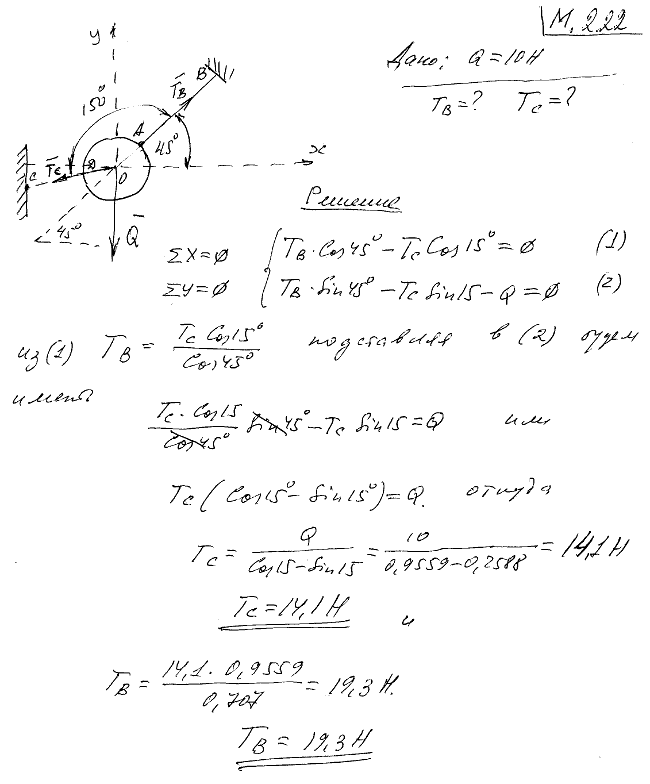 М. 2.22
Дано: Q = 10 Н
T_B = ? T_C = ?
y
150°
T̄_B
B
A
45°
x
C
T̄_C
D
O
45°
Q̄
Решение
ΣX = 0 { T_B · Cos 45° − T_C Cos 15° = 0 (1)
ΣY = 0 { T_B · Sin 45° − T_C Sin 15 − Q = 0 (2)
из (1) T_B = T_C Cos 15° / Cos 45° подставляя в (2) будем
иметь
T_C · Cos 15 / Cos 45° Sin 45° − T_C Sin 15 = Q или
T_C (Cos 15° − Sin 15°) = Q. откуда
T_C = Q / Cos 15 − Sin 15 = 10 / 0,9559 − 0,2588 = 14,1 Н
T_C = 14,1 Н и
T_B = 14,1 · 0,9559 / 0,707 = 19,3 Н.
T_B = 19,3 Н